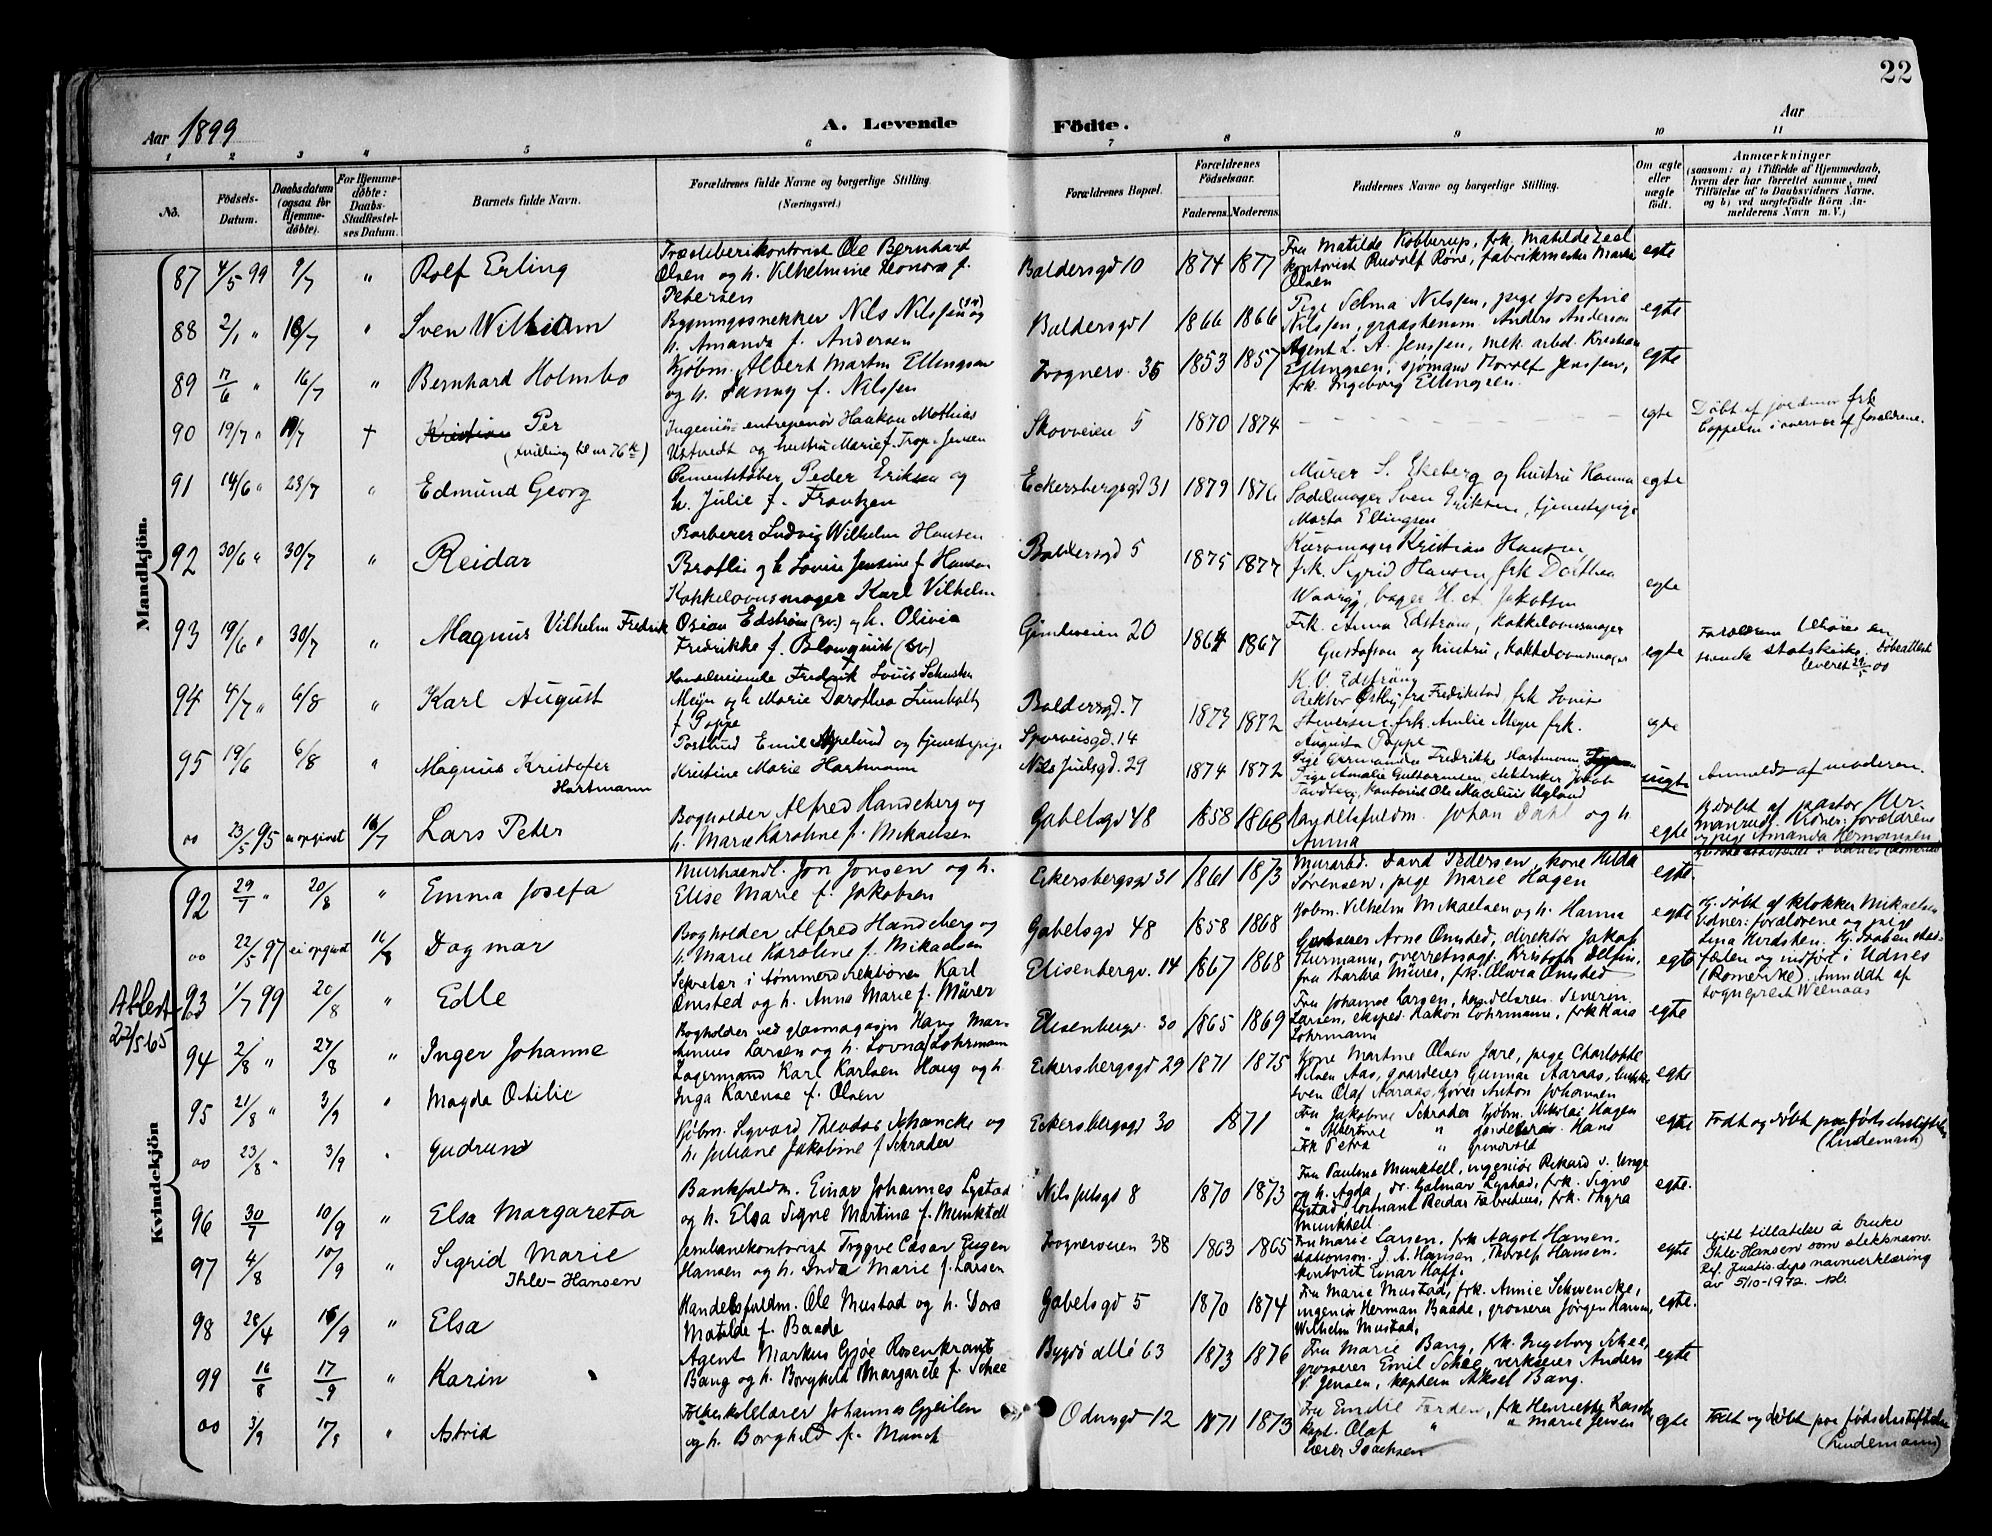 22
Aar 1899
A. Levende Födte.
Aar
1 2 3 4 5 6 7 8 9 10 11
No.
Födsels-Datum.
Daabsdatum (ogsaa for Hjemme-döbte).
For Hjemme-döbte: Daabs-Stadfæstel-ses Datum.
Barnets fulde Navn.
Forældrenes fulde Navne og borgerlige Stilling. (Næringsvei.)
Forældrenes Bopæl.
Forældrenes Födselsaar.
Faderens. Moderens.
Faddernes Navne og borgerlige Stilling.
Om ægte eller uægte födt.
Anmærkninger
(saasom: a) i Tilfælde af Hjemmedaab, hvem der har forrettet samme, med Tilföielse af to Daabsvidners Navne, og b) ved uægtefödte Börn An-melderens Navn m. V.)
Mandkjön.
87 4/5 99 9/7 " Rolf Erling
Ole Bernhard
Olsen og h. Vilhelmine Leonora f.
Petersen
Baldersgd 10 1874 1877
Fru Matilde Kobberup, frk. Matilde
kontorist Rudolf
Olsen
egte
88 2/1 " 16/7 " Sven William
Bygningssnekker Nils Nilsen (sv) og
h. Amanda f. Andersen
Baldersgd 1 1866 1866
Pige Selma Nilsen, pige Josefine
Nilsen, Anders Anderson
egte
89 17/6 " 16/7 " Bernhard Holmbo
Kjøbm. Albert Martin Ellingsen
og h. Fanny f. Nilsen
Frognerv. 36 1853 1857
Agent L. A. Jensen, mek. arbd. Kristian
Ellingsen, sjømand Jensen,
frk. Ingeborg Ellingsen.
egte
90 19/7 " 19/7 † Kristian Per
(tvilling til nr 76)
Ingeniør entreprenør Haakon Mathias
Ustvedt og hustru Marie f. Trop-Jensen
Skovveien 5 1870 1874
egte
Døbt af jordmor frk
Coppelen i nærvær af forældrene.
91 14/6 " 23/7 " Edmund Georg
Cementstøber Peder Eriksen og
h. Julie f. Frantzen
Eckersbergsgd 31 1879 1876
Murer S. Ekeberg og hustru Hanna
Sadelmager Sven Eriksen, tjenestepige
Marta Ellingsen
egte
92 30/6 " 30/7 " Reidar
Barberer Ludvig Wilhelm Hansen
og h Lovise Jensine f. Hansen
Baldersgd 5 1875 1877
Kurvmager Kristian Hansen
frk. Sigrid Hansen frk Dorthea
bager H. A. Jakobsen
egte
93 19/6 " 30/7 " Magnus Vilhelm Fredrik
Kakkelovnsmager Karl Vilhelm
Edstrøm (sv.) og h. Olivia
Fredrikke f. Blomquist (sv)
20 1864 1867
Frk. Anna Edstrøm, Kakkelovnsmager
Gustafson og hustru, kakkelovnsmager
K. V. Edstrøm
egte
Forældrene tilhører den
svenske statskirke.
94 4/7 " 6/8 " Karl August
Handelsreisende Fredrik Louis
Meyn og h Marie Dorothea Lumholtz
f. Poppe
Baldersgd. 7 1873 1872
Rektor Østbye fra Fredrikstad frk Lovise
Stuversen, frk. Amlie Meyn frk.
Augusta Poppe
egte
95 19/6 6/8 " Magnus Kristofer
Hartmann
Postbud Emil og tjenestepige
Kristine Marie Hartmann
Sporveisgd. 14
Nils Juelsgd. 29 1874 1872
Pige Germanda Fredrikke Hartmann
Pige Amalie Guttormsen, elektriker Jakob
Tandberg, kontorist Ole Marelius Ugland
uegte
Anmeldt af moderen.
oo 23/5 95 ei opgivet 16/7 Lars Peter
Bogholder Alfred Handeberg og
h. Marie Karoline f. Mikaelsen
Gabelsgd 48 1858 1868
Handelsfuldm. Johan Dahl og h.
Anna
egte
Kvindekjön
92 29/7 " 20/8 " Emma Josefa
Murhaandl. Jon Jonsen og h.
Elise Marie f. Jakobsen
Eckersbergsgd 31 1861 1873
Murarbd. David Pedersen, kone Hilda
Sørensen, pige Marie Hagen
egte
oo 22/5 97 ei opgivet 16/8 Dagmar
Bogholder Alfred Handeberg og
h. Marie Karoline f. Mikaelsen
Gabelsgd 48 1858 1868
Kjøbm. Vilhelm Mikaelsen og h. Hanna
egte
Hj. døbt af klokker Mikaelsen
Vidner: forældrene og pige
Hj. daaben stad-
fæstet og indført i Udnes
(Romerike). Anmeldt af
sogneprest
Atlest
22/5 65
93 1/7 99 20/8 " Edle
Sekretær i tømmerdirektionen Karl
Omsted og h. Anna Marie f. Mürer
Elisenbergv. 14 1867 1868
Grosserer Arne Omsted, direktør Jakob
Thurmann, overretssagf. Kristofer
fru Barbra Mürer, frk. Olivia Omsted
egte
94 2/8 " 27/8 " Inger Johanne
Bogholder ved glasmagasin Hans Mar-
tinius Larsen og h. Lovna f Lohrmann
Elisenbergv. 30 1865 1869
Fru Johanne Larsen, handelsreis. Severin
Larsen, eksped. Hakon Lohrmann, frk Kara
Lohrmann
egte
95 21/8 " 3/9 " Magda Otilie
Lagermand Karl Karlsen Haug og h.
Inga Karense f. Olsen
Eckersbergsgd 29 1871 1875
Kone Martine Olsen Jare, pige Charlotte
Nilsen Aas, garderer Gunnar Aaraas,
Sven Olaf Aaraas, Anton Johansen
egte
oo 23/8 " 3/9 " Gudrun
Kjøbm. Sigvard Theodor Schancke og
h. Juliane Jakobine f Schrader
Eckersbergsgd 30 1871
Fru Jakobine Schrader Kjøbm. Nikolai Hagen
" Albertine " Hans
Frk Petra " Gundvold
egte
Født og døbt paa fødselsstiftelsen
(Lindemann)
96 30/7 10/9 " Elsa Margareta
Bankfuldm. Einar Johannes Lystad
og h. Elsa Signe Martina f. Munktell
Nils Juelsgd 8 1870 1873
Fru Paulina Munktell, ingeniør Rikard v. Unge
og h. Agda dr. Hjalmar Lystad, frk. Signe
Lystad, løitnant Reidar Fabritius, frk. Thyra
Munktell
egte.
97 4/8 10/9 " Sigrid Marie
Ihle-Hansen
Jernbanekontorist Trygve Cæsar Eugen
Hansen og h. Inda Marie f. Larsen
Frognerveien 38 1863 1865
Fru Marie Larsen, frk Aagot Hansen.
J. A. Hansen, Thorolf Hansen.
kontorist Einar Hoff.
egte
Gitt tillatelse å bruke
Ihle-Hansen som slektsnavn.
Ref. Justis.deps navneerklæring
av 5/10-1972.
98 28/4 16/9 " Elsa
Handelsfuldm. Ole Mustad og h. Dora
Matilde f. Baade
Gabelsgd 5 1870 1874
Fru Marie Mustad, frk. Annie Schwencke,
ingeniør Herman Baade, grosserer Jørgen Hansen,
Wilhelm Mustad.
egte.
99 16/8 17/9 " Karin
Agent Markus Gjøe Rosenkrantz
Bang og h. Borghild Margarete f. Schee
Bygdø allé 63 1873 1876
Fru Marie Bang, frk. Ingeborg Schee,
grosserer Emil Schee, verkseier Anders
V. Jensen, kaptein Aksel Bang.
egte
oo 3/9 17/9 " Astrid
Folkeskolelærer Johannes Gjeilen
og h. Borghild f. Munch
Odinsgd 12 1871 1873
Fru Emilie frk Henriette
kapt. Olaf " " Marie Jensen
Lærer Isachsen
egte
Født og døbt paa fødselsstiftelsen
(Lindemann)